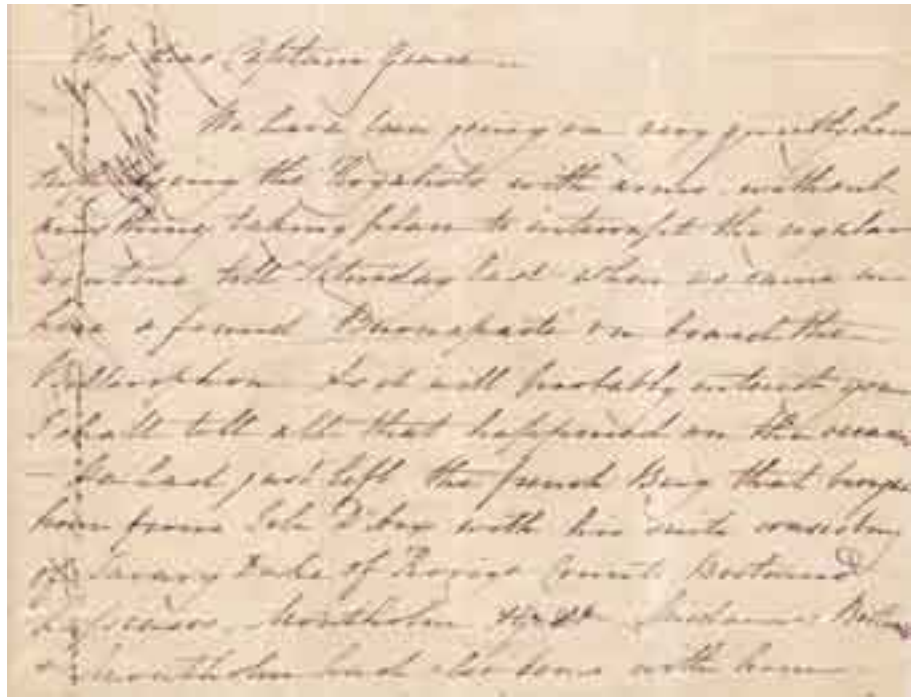 My dear Captain Grace
We have been going on very quietly here
supplying the Royalists with arms without
anything taking place to interrupt the regular
routine till Saturday last when we came in
here & found Buonaparte on board the
Bellerophon. As it will probably interest you
I shall tell all that happened on the occasion
- he had just left the french Brig that brought
him from Isle D'Aix with his suite consisting
of Savary Duke of Rovigo Count Bertrand
Lascases, Montholon Madame Bertrand
& Montholon had also come with him